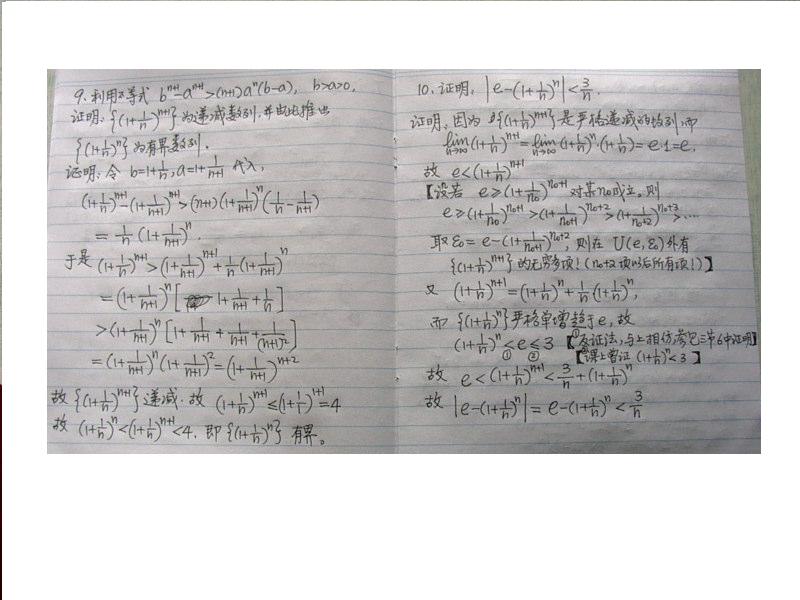 9.利用不等式 b^{n+1}-a^{n+1}>(n+1)a^n(b-a), b>a>0,
证明:{(1+1/n)^{n+1}}为递减数列,并由此推出
{(1+1/n)^n}为有界数列.
证明:令 b=1+1/n, a=1+1/(n+1) 代入,
(1+1/n)^{n+1}-(1+1/(n+1))^{n+1}>(n+1)(1+1/(n+1))^n(1/n-1/(n+1))
=1/n(1+1/(n+1))^n.
于是(1+1/n)^{n+1}>(1+1/(n+1))^{n+1}+1/n(1+1/(n+1))^n
=(1+1/(n+1))^n[1+1/(n+1)+1/n]
>(1+1/(n+1))^n[1+1/(n+1)+1/(n+1)+1/(n+1)^2]
=(1+1/(n+1))^n(1+1/(n+1))^2=(1+1/(n+1))^{n+2}
故{(1+1/n)^{n+1}}递减.故 (1+1/n)^{n+1}≤(1+1/1)^{1+1}=4
故 (1+1/n)^n<(1+1/n)^{n+1}<4.即{(1+1/n)^n}有界。
10.证明:|e-(1+1/n)^n|<3/n.
证明:因为{(1+1/n)^{n+1}}是严格递减的数列,而
lim_{n→∞}(1+1/n)^{n+1}=lim_{n→∞}(1+1/n)^n·(1+1/n)=e·1=e.
故 e<(1+1/n)^{n+1}
【设若 e≥(1+1/n₀)^{n₀+1} 对某n₀成立.则
e≥(1+1/n₀)^{n₀+1}>(1+1/(n₀+1))^{n₀+2}>(1+1/(n₀+2))^{n₀+3}>....
取ε₀=e-(1+1/(n₀+1))^{n₀+2},则在 U(e,ε₀)外有
{(1+1/n)^{n+1}}的无穷多项!(n₀+2项以后所有项!)】
又 (1+1/n)^{n+1}=(1+1/n)^n+1/n(1+1/n)^n,
而{(1+1/n)^n}严格单增趋于e,故
(1+1/n)^n<e≤3【①反证法,与上相仿,参见三节6中证明】
① ②【②课上曾证(1+1/n)^n<3】
故 e<(1+1/n)^{n+1}<3/n+(1+1/n)^n
故 |e-(1+1/n)^n|=e-(1+1/n)^n<3/n